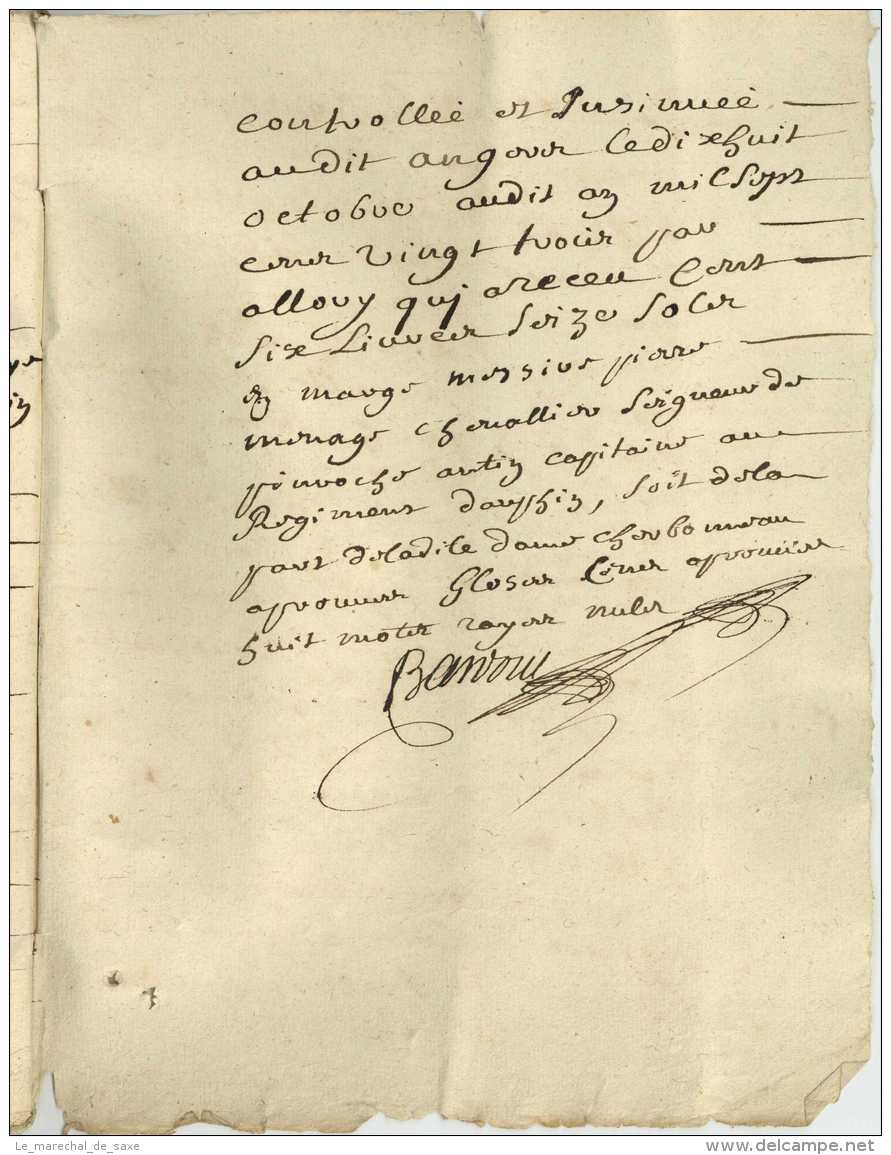 controllée et Insinuée
audit angers le dixhuit
octobre audit an mil sept
cens vingt trois par
allory qui a receu Cent
Six Livres Seize Sols
en marge messire pierre
menage chevallier Seigneur de
pinroche antin capitaine au
Regiment dauphin, soit de la
part de ladite dame cherbonneau
aprouvés Gloses Cens aprouvés
huit mots rayes nuls
Le_marechal_de_saxe
www.delcampe.net